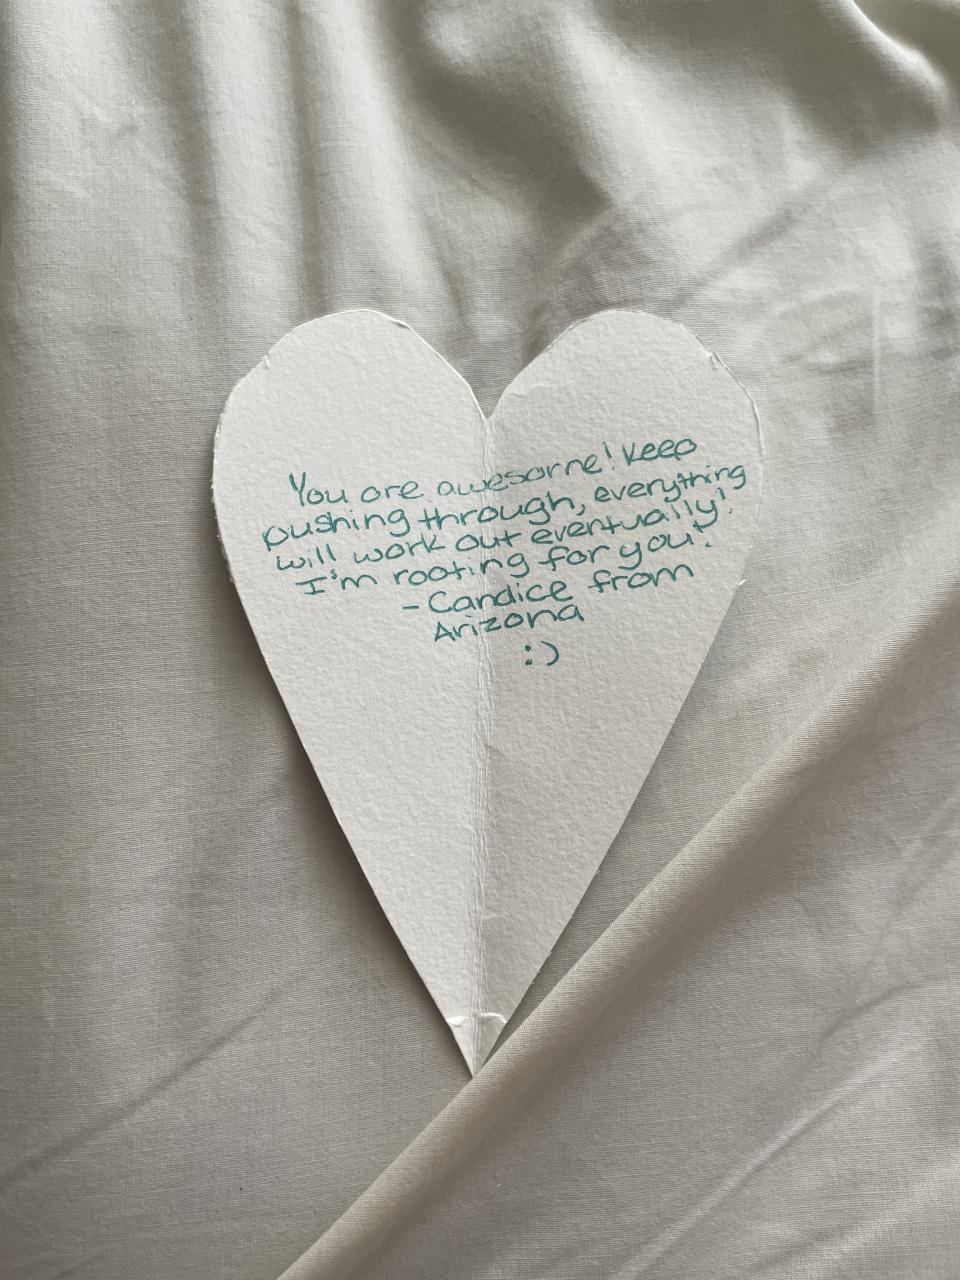 You are awesome! Keep
pushing through, everything
will work out eventually!
I'm rooting for you!
- Candice from
Arizona
:)